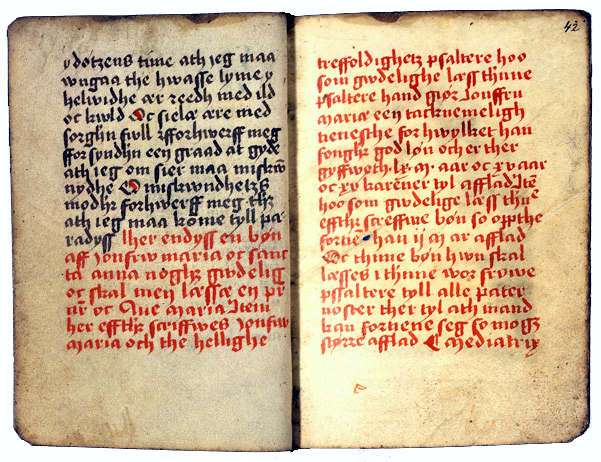 y dotzens time ath ieg maa
wngaa the hwasse lyme y
helwidhe ær reedh med ild
oc kwld Oc sielæ ære med
sorghn fwll fforhwerff meg
ffor syndhn een graad at gyde
ath ieg om sier maa miskwn
nydhe O miskwndhetzens
modhr forhwerff meg thz
ath ieg maa kome tyll pa-
radyss Iher endyss en bøn
aff Jomfrw maria oc sanc
ta anna noghz gwdelig
oc skal men læsse en pr
nr oc Aue maria Item
her effthr screffwes Jomfrw
maria och the hellighe
42
treffoldighetz psaltere hoo
som gwdelighe læss thnne
psaltere hand giør Jomffrw
mariæ een tacknemeligh
tieneste for hwylket han
fonghr god løn och er ther
gyffweth lx m aar oc xv aar
oc xv karener tyl afflad Item
hoo som gwdelige læss thne
effthr screffwe bøn so oppthe
fortien han ij m ar afflad
Oc thnne bøn hwn skal
læsses i thnne wor frwwe
pssaltere tyll alle pater
noster ther tyl ath mand
kan fortiene seg so mogz
større afflad C mediatrix